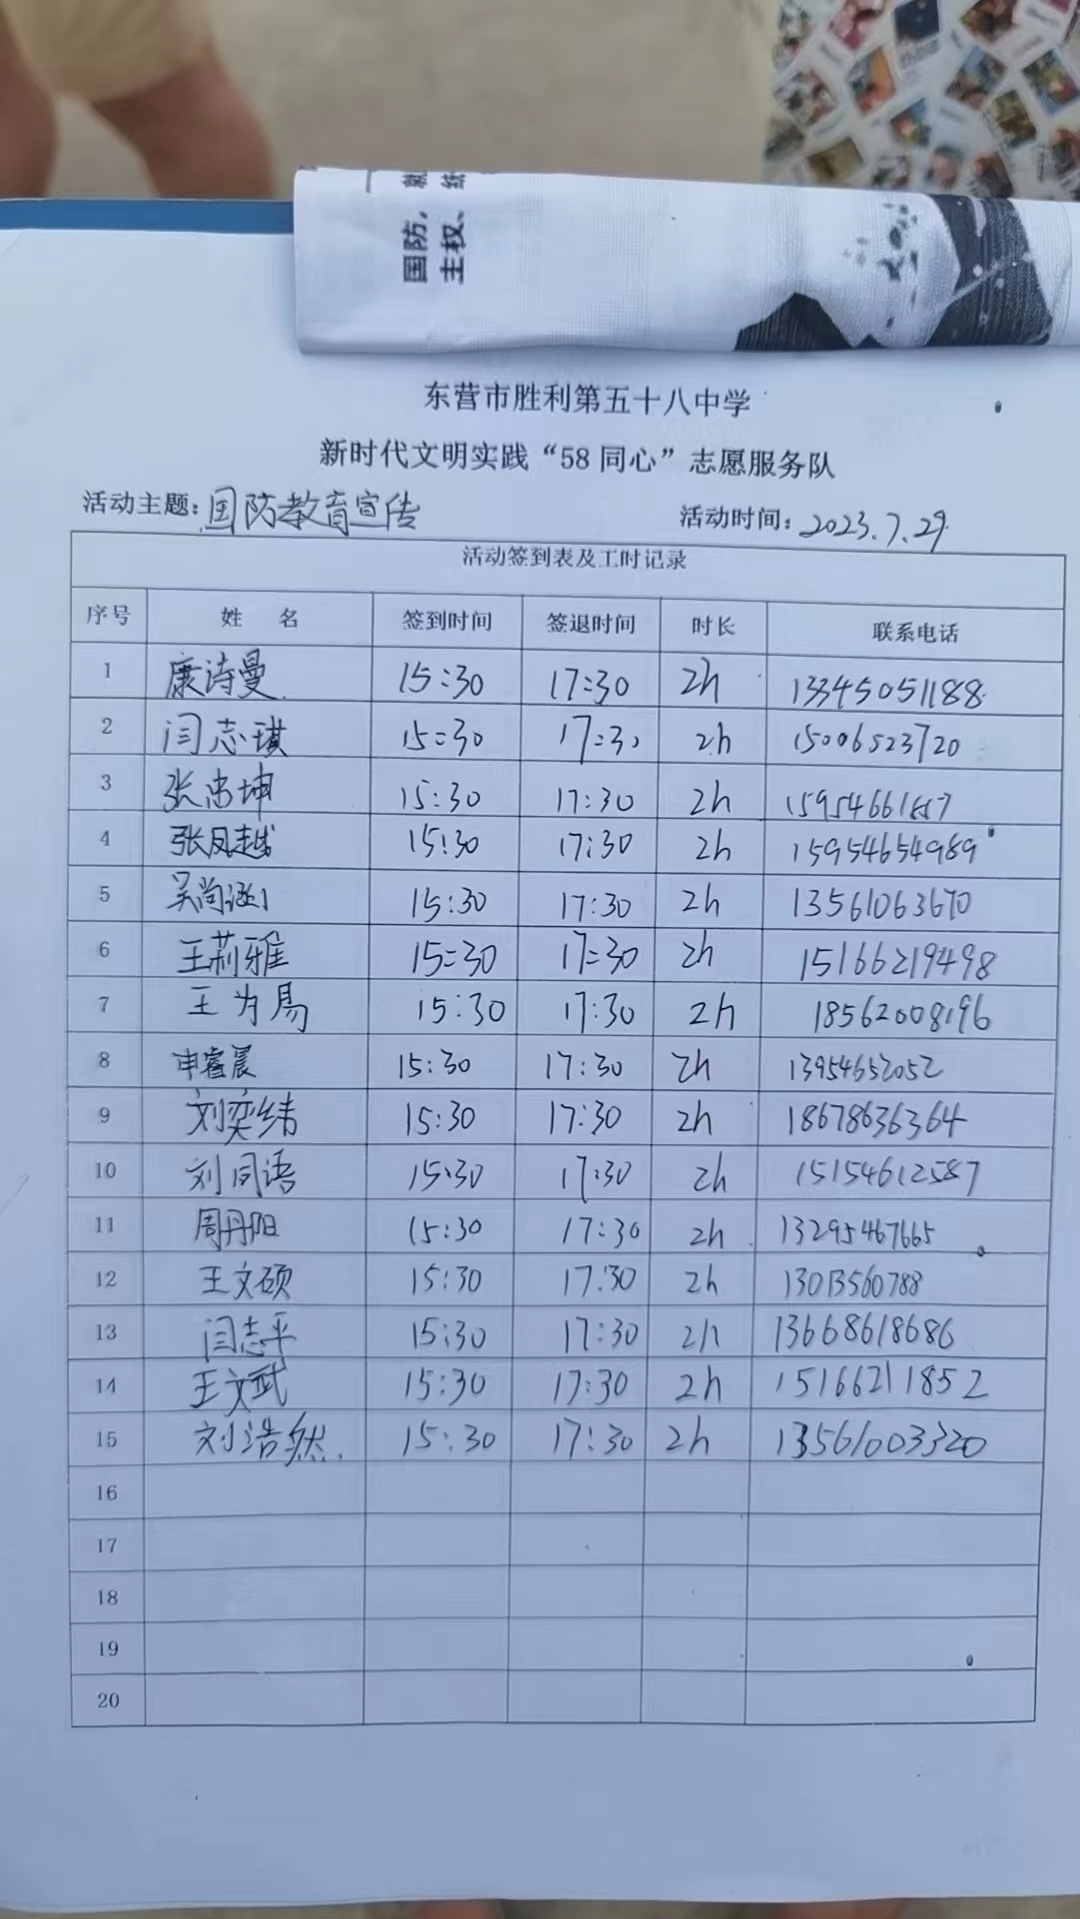 就
统
国防,
主权、
东营市胜利第五十八中学
新时代文明实践“58 同心”志愿服务队
活动主题:国防教育宣传 活动时间:2023.7.29
活动签到表及工时记录
序号 姓 名 签到时间 签退时间 时长 联系电话
1 康诗曼 15:30 17:30 2h 13345051188
2 闫志琪 15:30 17:30 2h 15006523720
3 张忠坤 15:30 17:30 2h 15954661657
4 张凤越 15:30 17:30 2h 15954654989
5 吴尚涵 15:30 17:30 2h 13561063670
6 王莉雅 15:30 17:30 2h 15166219498
7 王为易 15:30 17:30 2h 18562008196
8 申睿晨 15:30 17:30 2h 13954652052
9 刘奕纬 15:30 17:30 2h 18678636364
10 刘同语 15:30 17:30 2h 15154612587
11 周丹阳 15:30 17:30 2h 13295467665
12 王文硕 15:30 17:30 2h 13013560788
13 闫志平 15:30 17:30 2h 13668618686
14 王文武 15:30 17:30 2h 15166211852
15 刘浩然. 15:30 17:30 2h 13561003320
16
17
18
19
20